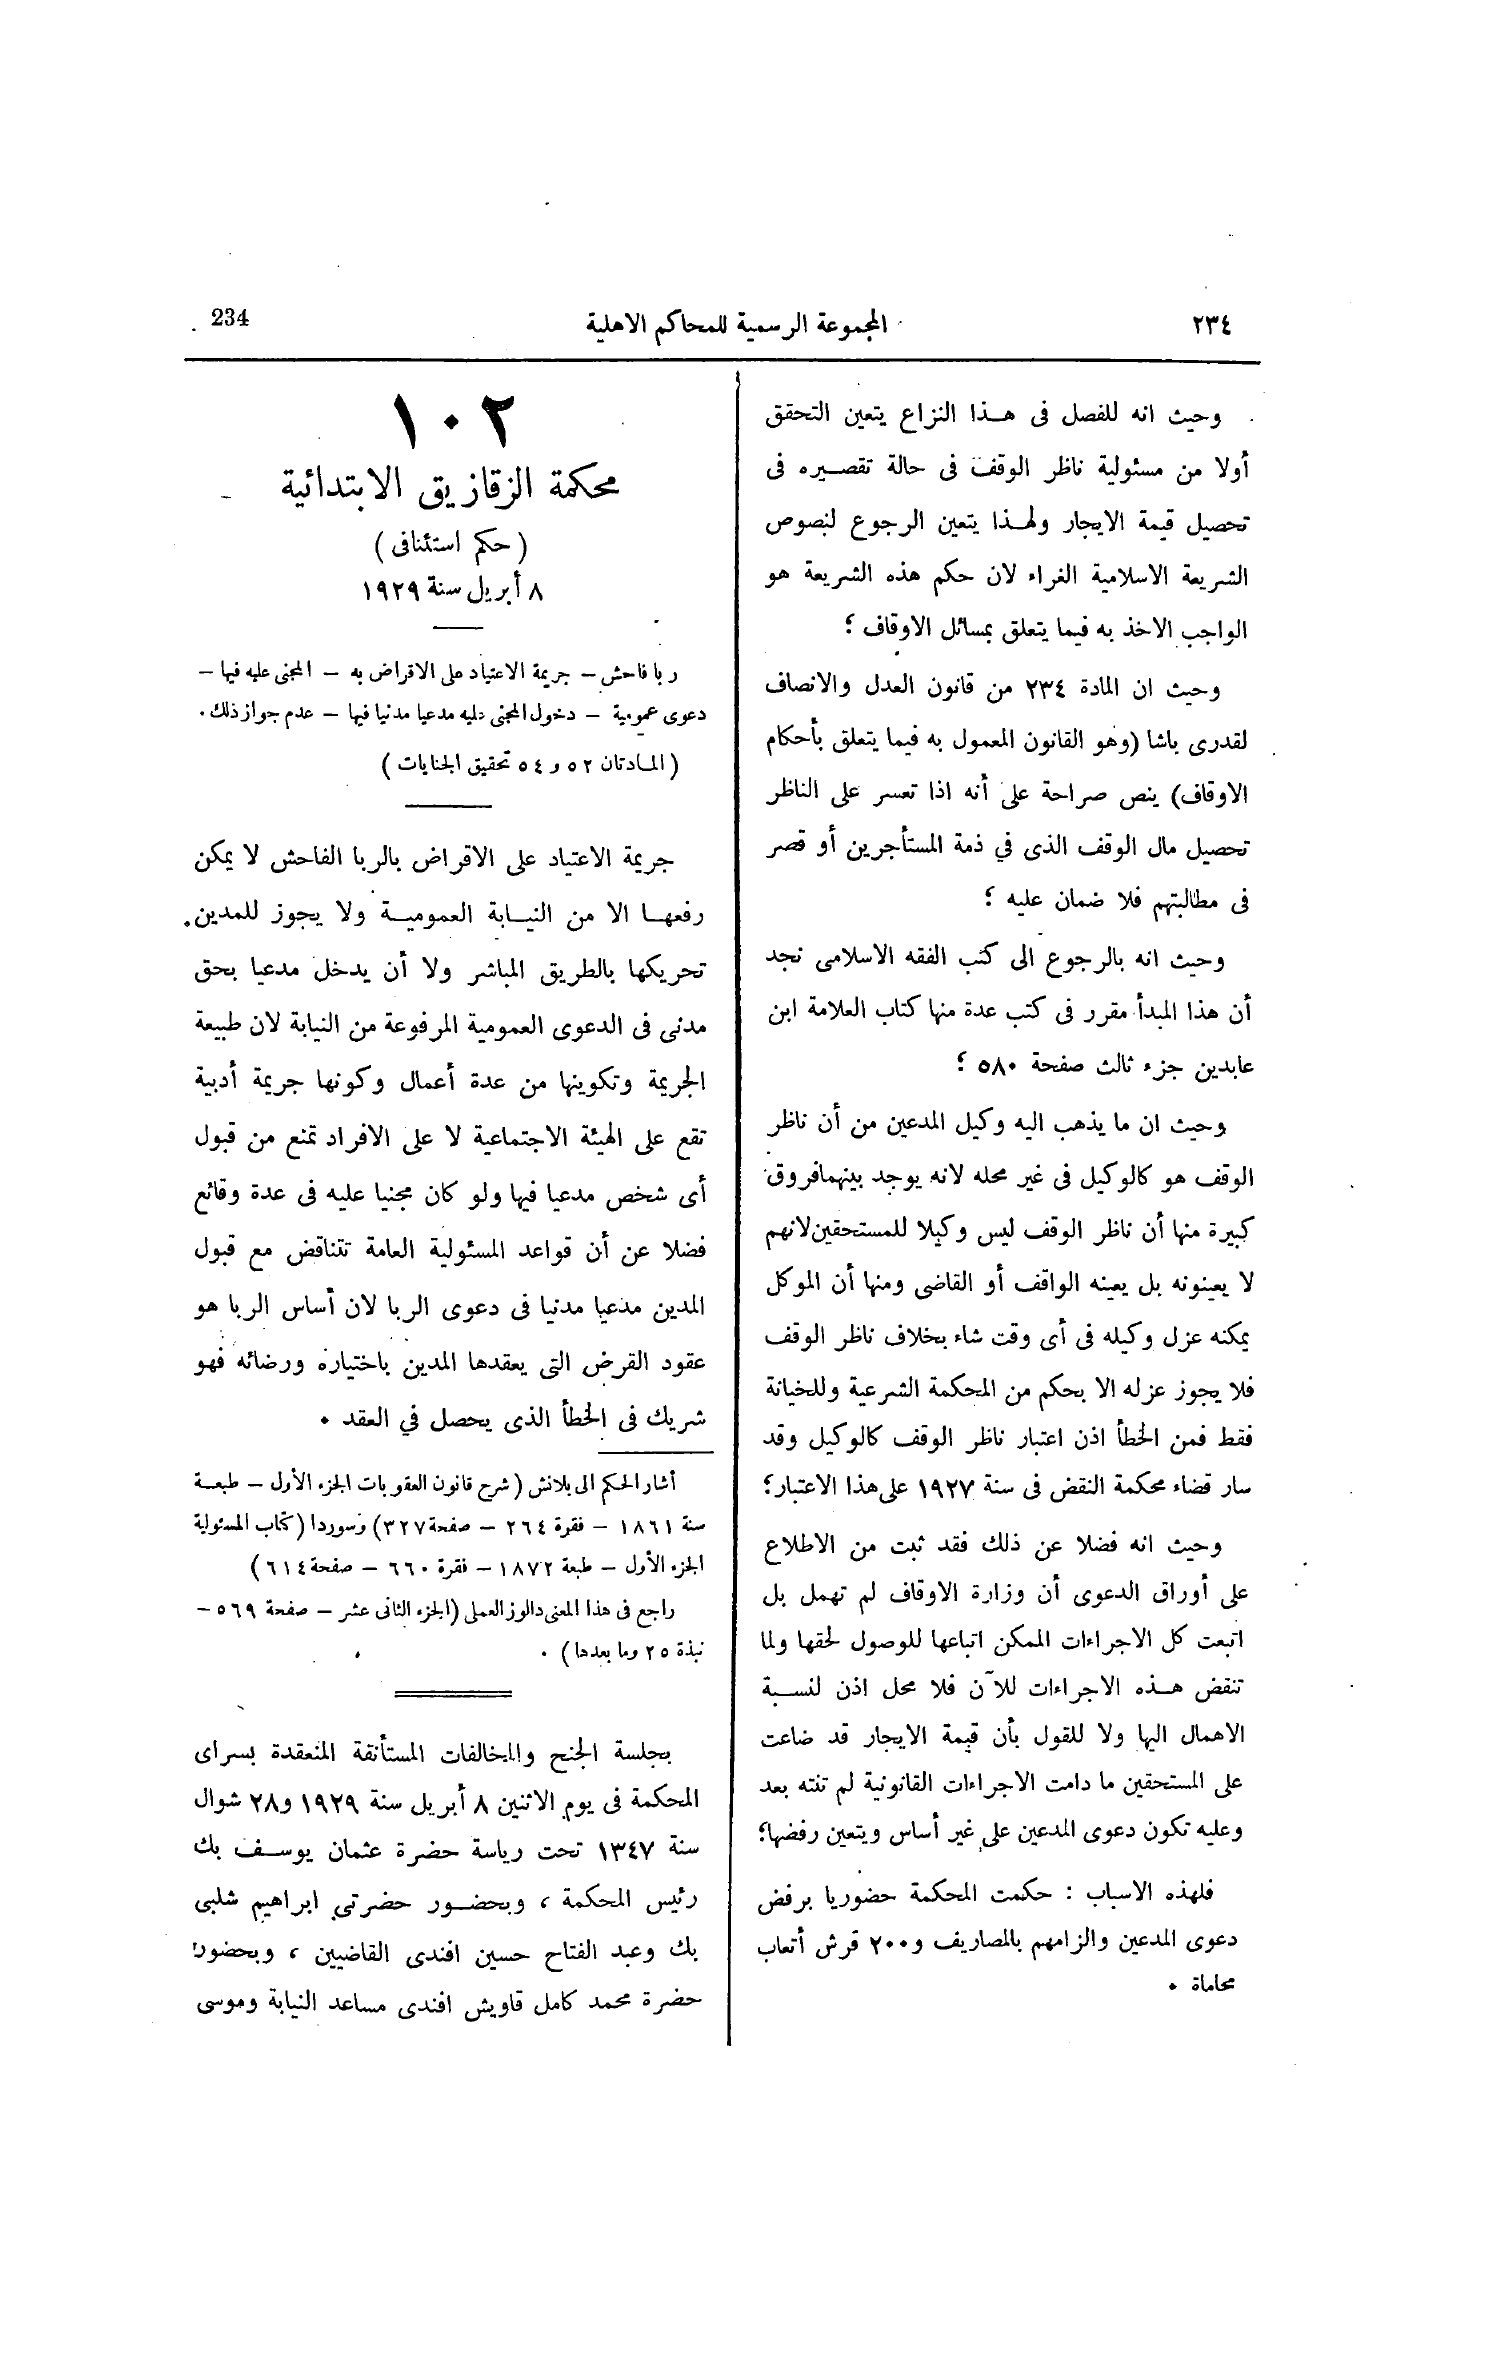 ٢٣٤
المجموعة الرسمية للمحاكم الاهلية
234
وحيث انه للفصل فى هذا النزاع يتعين التحقق
أولا من مسئولية ناظر الوقف فى حالة تقصيره فى
تحصيل قيمة الايجار ولهذا يتعين الرجوع لنصوص
الشريعة الاسلامية الغراء لان حكم هذه الشريعة هو
الواجب الاخذ به فيما يتعلق بمسائل الاوقاف ؛
وحيث ان المادة ٢٣٤ من قانون العدل والانصاف
لقدرى باشا (وهو القانون المعمول به فيما يتعلق بأحكام
الاوقاف) ينص صراحة على أنه اذا تعسر على الناظر
تحصيل مال الوقف الذى في ذمة المستأجرين أو قصر
فى مطالبتهم فلا ضمان عليه ؛
وحيث انه بالرجوع الى كتب الفقه الاسلامى نجد
أن هذا المبدأ مقرر فى كتب عدة منها كتاب العلامة ابن
عابدين جزء ثالث صفحة ٥٨٠ ؛
وحيث ان ما يذهب اليه وكيل المدعين من أن ناظر
الوقف هو كالوكيل فى غير محله لانه يوجد بينهما فروق
كبيرة منها أن ناظر الوقف ليس وكيلا للمستحقين لانهم
لا يعينونه بل يعينه الواقف أو القاضى ومنها أن الموكل
يمكنه عزل وكيله فى أى وقت شاء بخلاف ناظر الوقف
فلا يجوز عزله الا بحكم من المحكمة الشرعية وللخيانة
فقط فمن الخطأ اذن اعتبار ناظر الوقف كالوكيل وقد
سار قضاء محكمة النقض فى سنة ١٩٢٧ على هذا الاعتبار ؛
وحيث انه فضلا عن ذلك فقد ثبت من الاطلاع
على أوراق الدعوى أن وزارة الاوقاف لم تهمل بل
اتبعت كل الاجراءات الممكن اتباعها للوصول لحقها ولما
تنقض هذه الاجراءات للآن فلا محل اذن لنسبة
الاهمال اليها ولا للقول بأن قيمة الايجار قد ضاعت
على المستحقين ما دامت الاجراءات القانونية لم تنته بعد
وعليه تكون دعوى المدعين على غير أساس ويتعين رفضها ؛
فلهذه الاسباب : حكمت المحكمة حضوريا برفض
دعوى المدعين والزامهم بالمصاريف و٢٠٠ قرش أتعاب
محاماة .
١٠٢
محكمة الزقازيق الابتدائية
( حكم استئنافى )
٨ أبريل سنة ١٩٢٩
ربا فاحش – جريمة الاعتياد على الاقراض به – المجنى عليه فيها –
دعوى عمومية – دخول المجنى عليه مدعيا مدنيا فيها – عدم جواز ذلك .
( المادتان ٥٢ و ٥٤ تحقيق الجنايات )
جريمة الاعتياد على الاقراض بالربا الفاحش لا يمكن
رفعها الا من النيابة العمومية ولا يجوز للمدين
تحريكها بالطريق المباشر ولا أن يدخل مدعيا بحق
مدنى فى الدعوى العمومية المرفوعة من النيابة لان طبيعة
الجريمة وتكوينها من عدة أعمال وكونها جريمة أدبية
تقع على الهيئة الاجتماعية لا على الافراد تمنع من قبول
أى شخص مدعيا فيها ولو كان مجنيا عليه فى عدة وقائع
فضلا عن أن قواعد المسئولية العامة تتناقض مع قبول
المدين مدعيا مدنيا فى دعوى الربا لان أساس الربا هو
عقود القرض التى يعقدها المدين باختياره ورضائه فهو
شريك فى الخطأ الذى يحصل في العقد .
أشار الحكم الى بلانش ( شرح قانون العقوبات الجزء الأول – طبعة
سنة ١٨٦١ – فقرة ٢٦٤ – صفحة ٣٢٧) وسوردا (كتاب المسئولية
الجزء الأول – طبعة ١٨٧٢ – فقرة ٦٦٠ – صفحة ٦١٤)
راجع فى هذا المعنى دالوز العملى (الجزء الثانى عشر – صفحة ٥٦٩ –
نبذة ٢٥ وما بعدها) .
بجلسة الجنح والمخالفات المستأنفة المنعقدة بسراى
المحكمة فى يوم الاثنين ٨ أبريل سنة ١٩٢٩ و٢٨ شوال
سنة ١٣٤٧ تحت رياسة حضرة عثمان يوسف بك
رئيس المحكمة ، وبحضور حضرتي ابراهيم شلبى
بك وعبد الفتاح حسين افندى القاضيين ، وبحضور
حضرة محمد كامل قاويش افندى مساعد النيابة وموسى